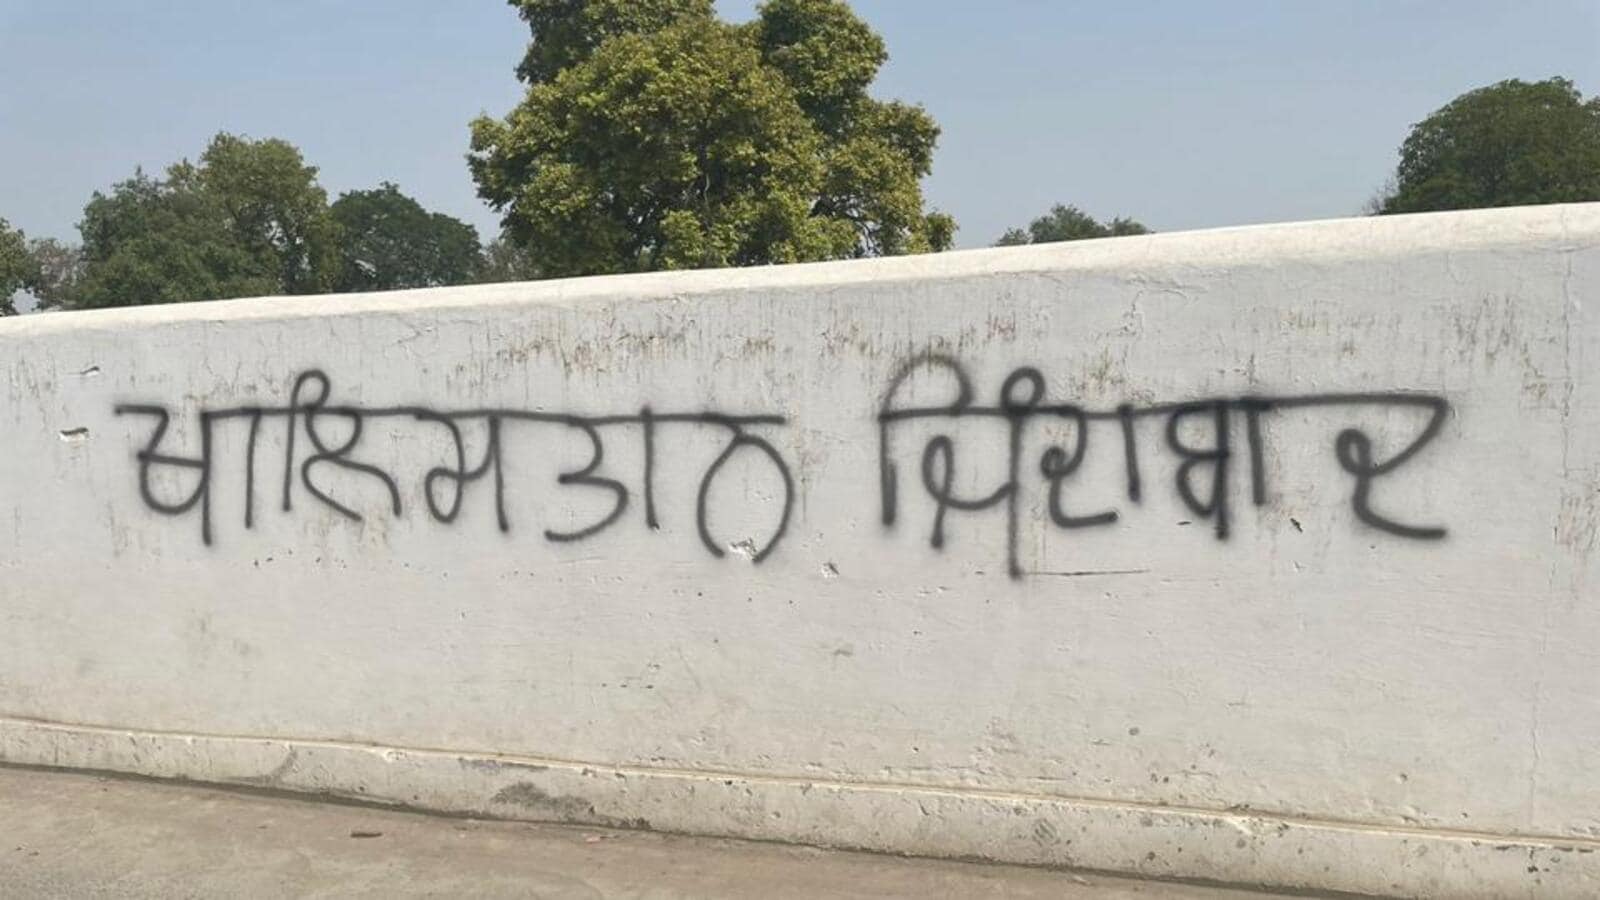 ਖਾਲਿਸਤਾਨ ਜ਼ਿੰਦਾਬਾਦ